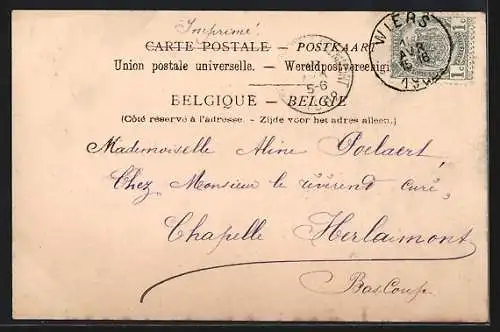 Imprimé
CARTE POSTALE — POSTKAART
Union postale universelle. — Wereldpostvereeniging
BELGIQUE — BELGIE
(Côté réservé à l'adresse. - Zijde voor het adres alleen.)
Mademoiselle Aline Poelaert,
Chez Monsieur le révérend curé,
Chapelle Herlaimont
Bascoup
WIERS
1c 1c
5-6